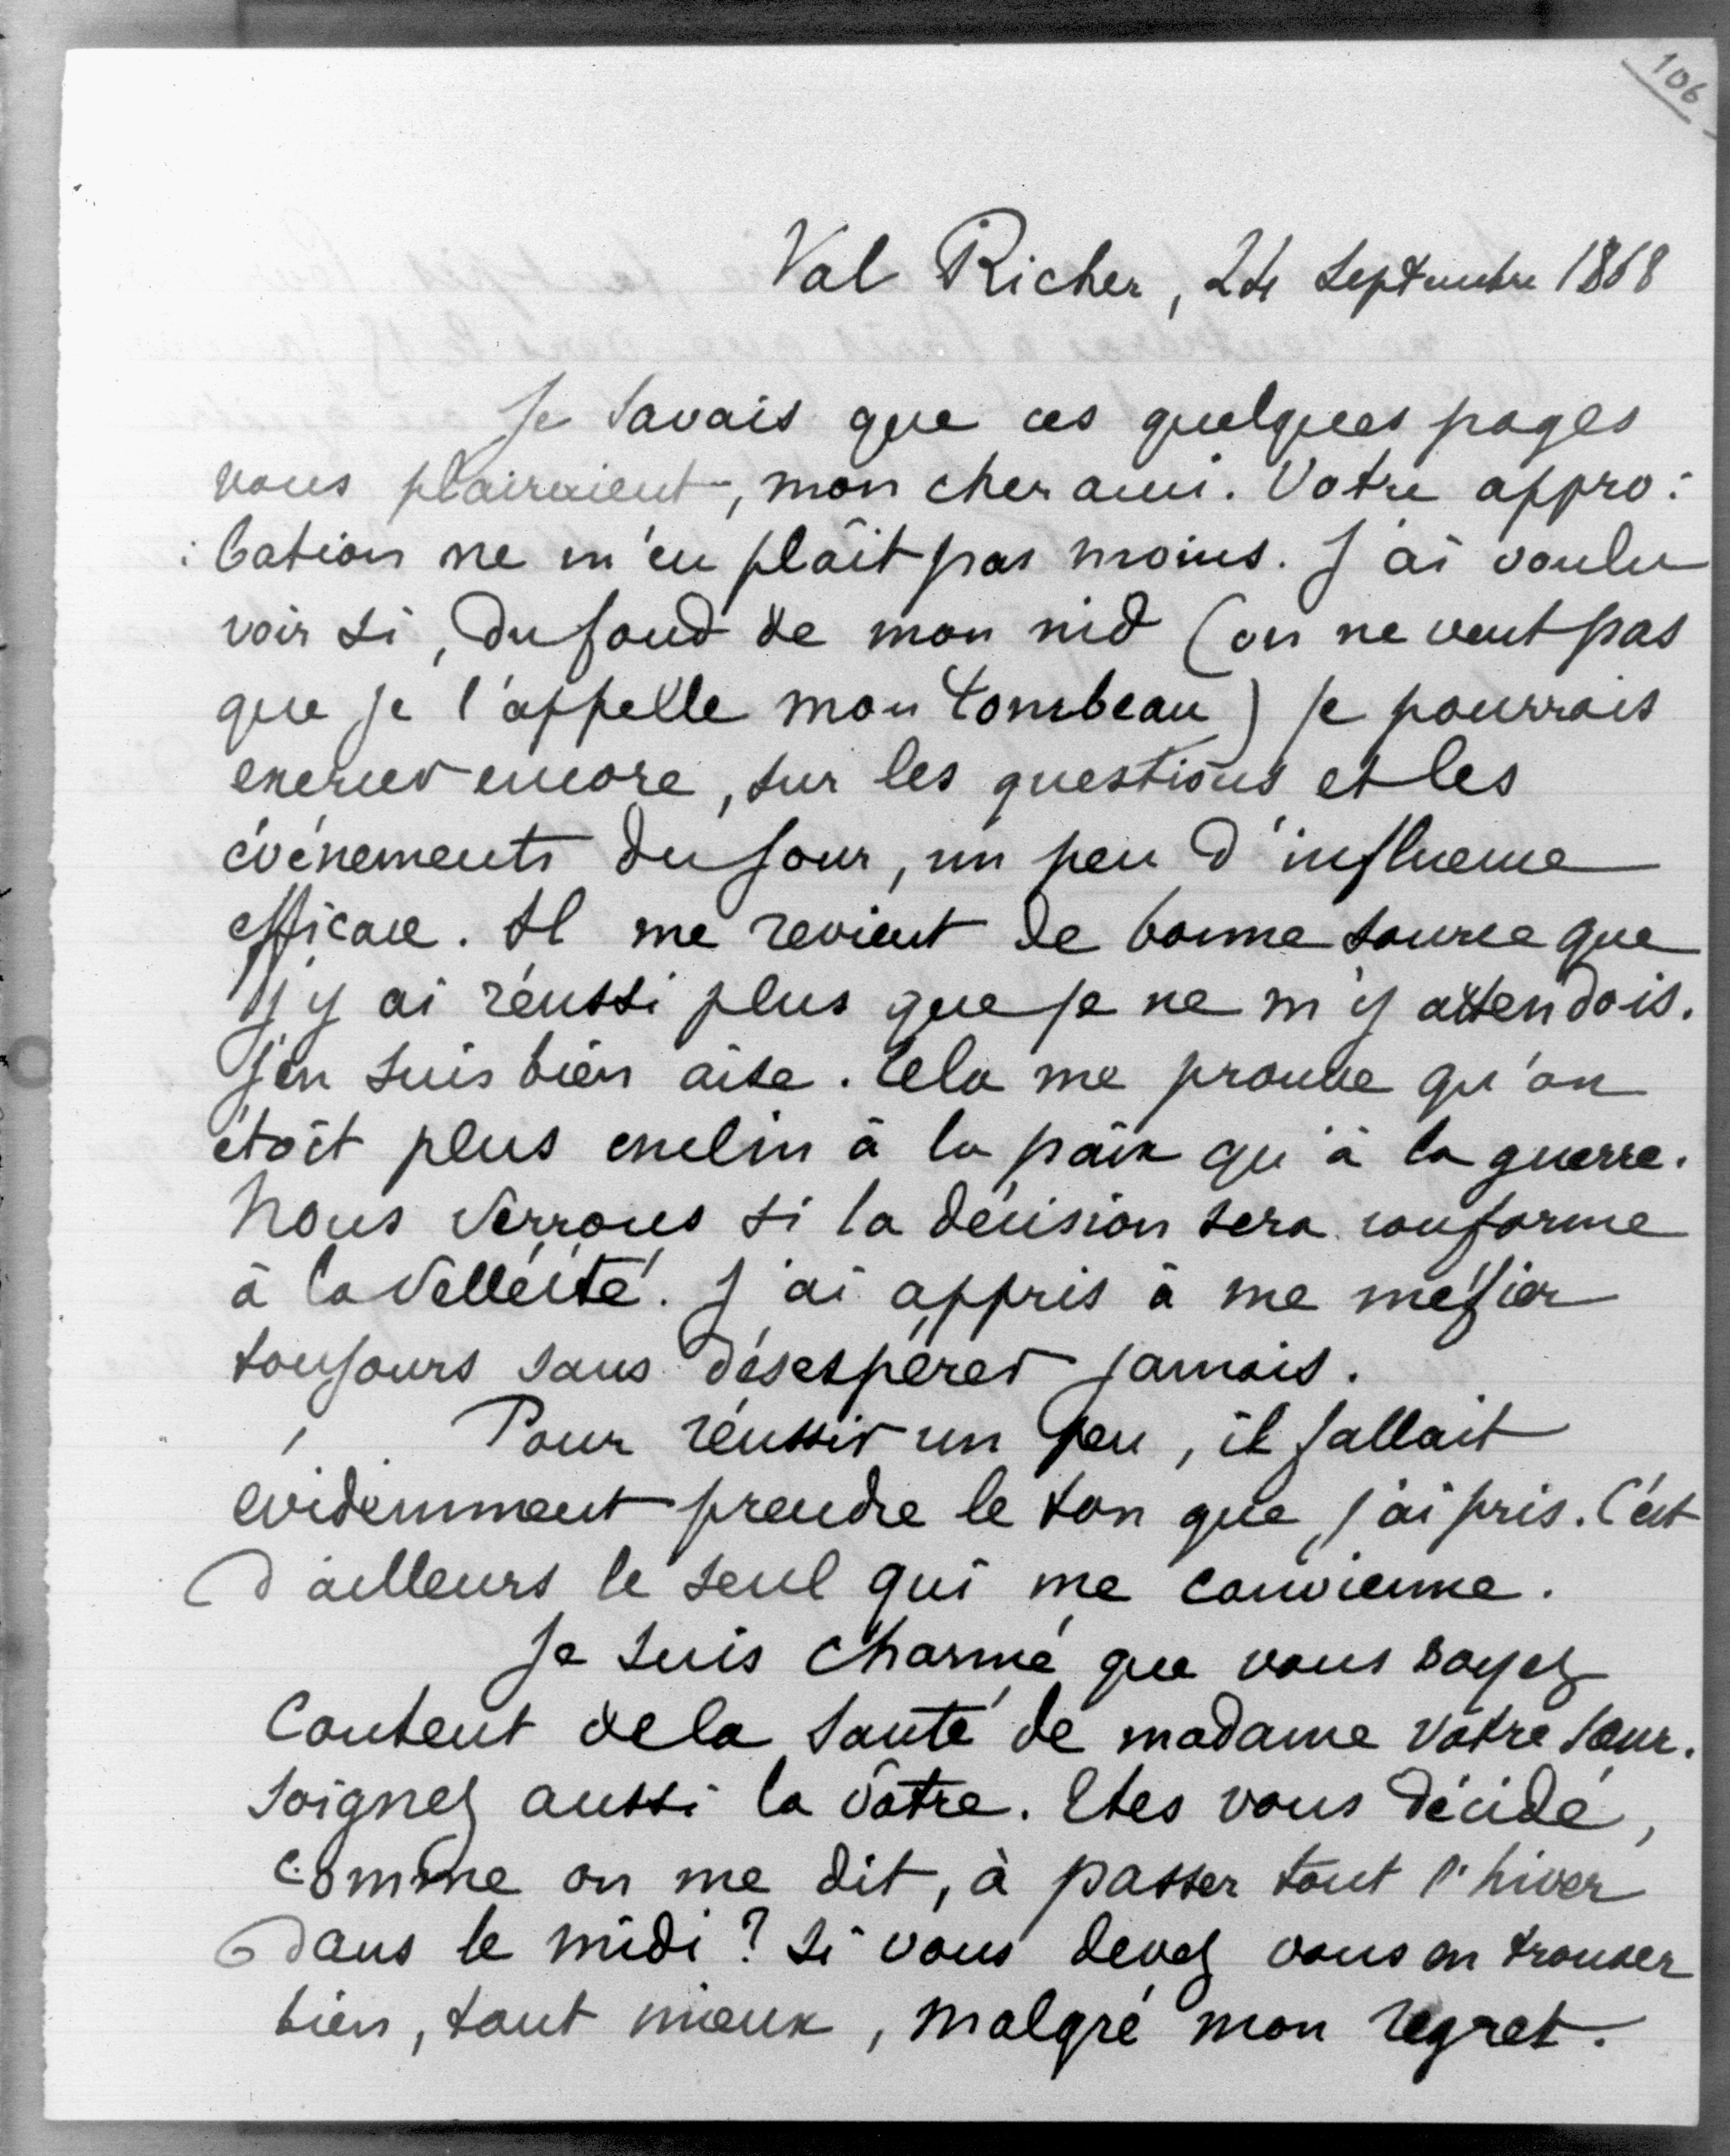 106
Val Richer, 24 Septembre 1868
Je savais que ces quelques pages
vous plairaient, mon cher ami. Votre appro:
:bation ne m'en plaît pas moins. J'ai voulu
voir si, du fond de mon nid (on ne veut pas
que je l'appelle mon tombeau) je pourrais
exercer encore, sur les questions et les
événements du jour, un peu d'influence
efficace. Il me revient de bonne source que
j'y ai réussi plus que je ne m'y attendois.
J'en suis bien aise. Cela me prouve qu'on
étoit plus enclin à la paix qu'à la guerre.
Nous verrons si la décision sera conforme
à la velléité. J'ai appris à me méfier
toujours sans désespérer jamais.
Pour réussir un peu, il fallait
évidemment prendre le ton que j'ai pris. C'est
d'ailleurs le seul qui me convienne.
Je suis charmé que vous soyez
content de la santé de madame votre sœur.
Soignez aussi la vôtre. Etes vous décidé,
comme on me dit, à passer tout l'hiver
dans le midi ? Si vous devez vous en trouver
bien, tant mieux, malgré mon regret.